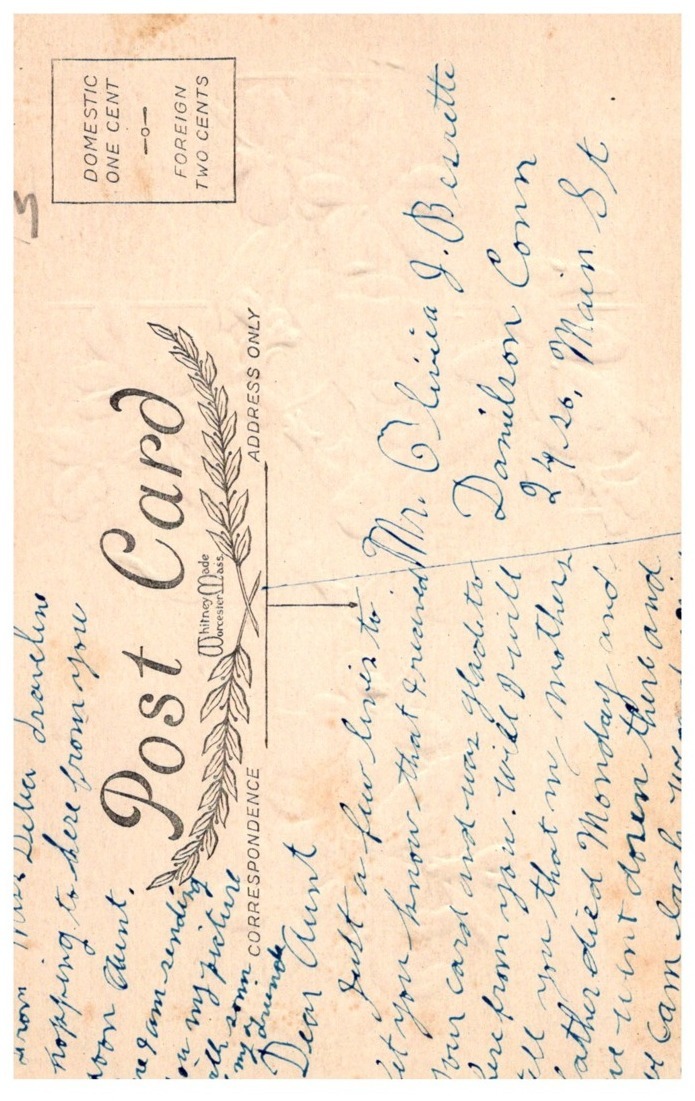 DOMESTIC
ONE CENT
FOREIGN
TWO CENTS
Post Card
Whitney Made
Worcester Mass.
CORRESPONDENCE
ADDRESS ONLY
Dear Aunt
Just a few lines to
let you know that I recived
your card and was glad to
here from you. Will I will
tell you that my mothers
father died Monday and
we went down there and
we cam back
from Miss Delia
hopping to here from you
soon Aunt.
me am sending
you my picture
with som
my of
friends
Mr. Olivia J. Bessette
Danielson Conn
24 so. Main St
5